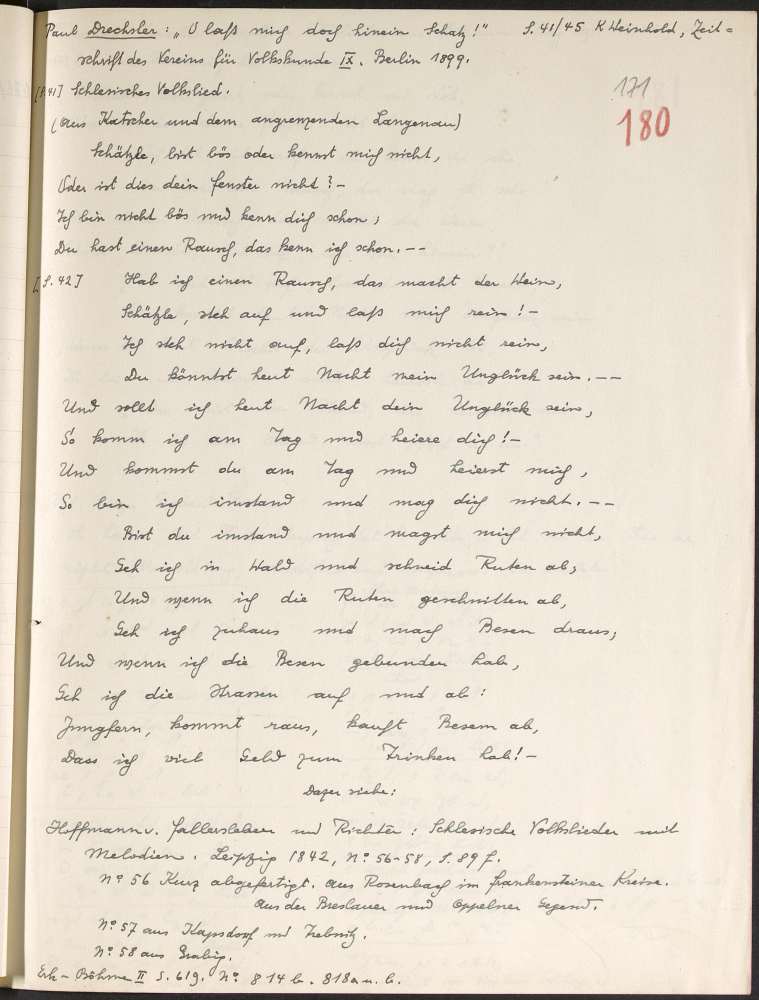 Paul Drechsler: „O laß mich doch hinein Schatz!" S. 41/45 K Weinhold, Zeit=
schrift des Vereins für Volkskunde IX. Berlin 1899.
[S. 41] Schlesisches Volkslied.
171
(Aus Katscher und dem angrenzenden Langenau)
180
Schätzle, bist bös oder kennst mich nicht,
Oder ist dies dein Fenster nicht? –
Ich bin nicht bös und kenn dich schon;
Du hast einen Rausch, das kenn ich schon. – –
[S. 42] Hab ich einen Rausch, das macht der Wein,
Schätzle, steh auf und laß mich rein! –
Ich steh nicht auf, laß dich nicht rein,
Du könntst heut Nacht mein Unglück sein. – –
Und sollt ich heut Nacht dein Unglück sein,
So komm ich am Tag und heiere dich! –
Und kommst du am Tag und heierst mich,
So bin ich imstand und mag dich nicht. – –
Bist du imstand und magst mich nicht,
Geh ich in Wald und schneid Ruten ab;
Und wenn ich die Ruten geschnitten ab,
Geh ich zuhaus und mach Besen draus;
Und wenn ich die Besen gebunden hab,
Geh ich die Strassen auf und ab:
Jungfern, kommt raus, kauft Besem ab,
Dass ich viel Geld zum Trinken hab! –
Dazu siehe:
Hoffmann v. Fallersleben und Richter: Schlesische Volkslieder mit
Melodien. Leipzig 1842, No 56-58, S. 89 f.
No 56 Kurz abgefertigt. Aus Rosenbach im Frankensteiner Kreise.
Aus der Breslauer und Oppelner Gegend.
No 57 aus Kapsdorf und Trebnitz.
No 58 aus Grabig.
Erk – Böhme II S. 619. No. 814 b. 818a u. b.